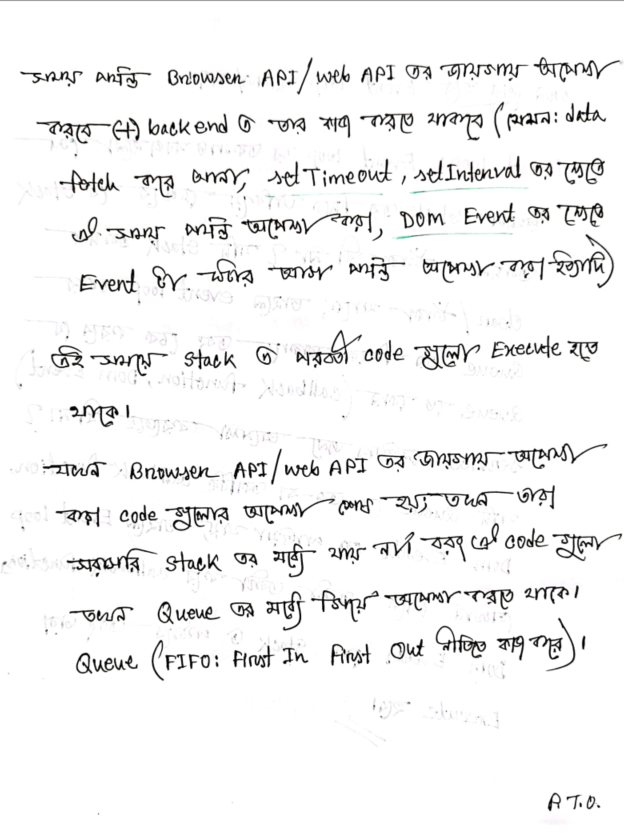 সময় পর্যন্ত Browser API/web API এর জায়গায় অপেক্ষা
করবে (+) backend এ তার কাজ করতে থাকবে (যেমন: data
fetch করে আনা, setTimeout, setInterval এর ক্ষেত্রে
ঐ সময় পর্যন্ত অপেক্ষা করা, DOM Event এর ক্ষেত্রে
Event টা ঘটার আগ পর্যন্ত অপেক্ষা করা ইত্যাদি)
এই সময়ে stack এ পরবর্তী code গুলো Execute হতে
থাকে।
যখন Browser API/web API এর জায়গায় অপেক্ষা
করা code গুলোর অপেক্ষা শেষ হয়; তখন তারা
সরাসরি stack এর মধ্যে যায় না। বরং ঐ code গুলো
তখন Queue এর মধ্যে গিয়ে অপেক্ষা করতে থাকে।
Queue (FIFO: First In First Out নীতিতে কাজ করে)।
P.T.O.